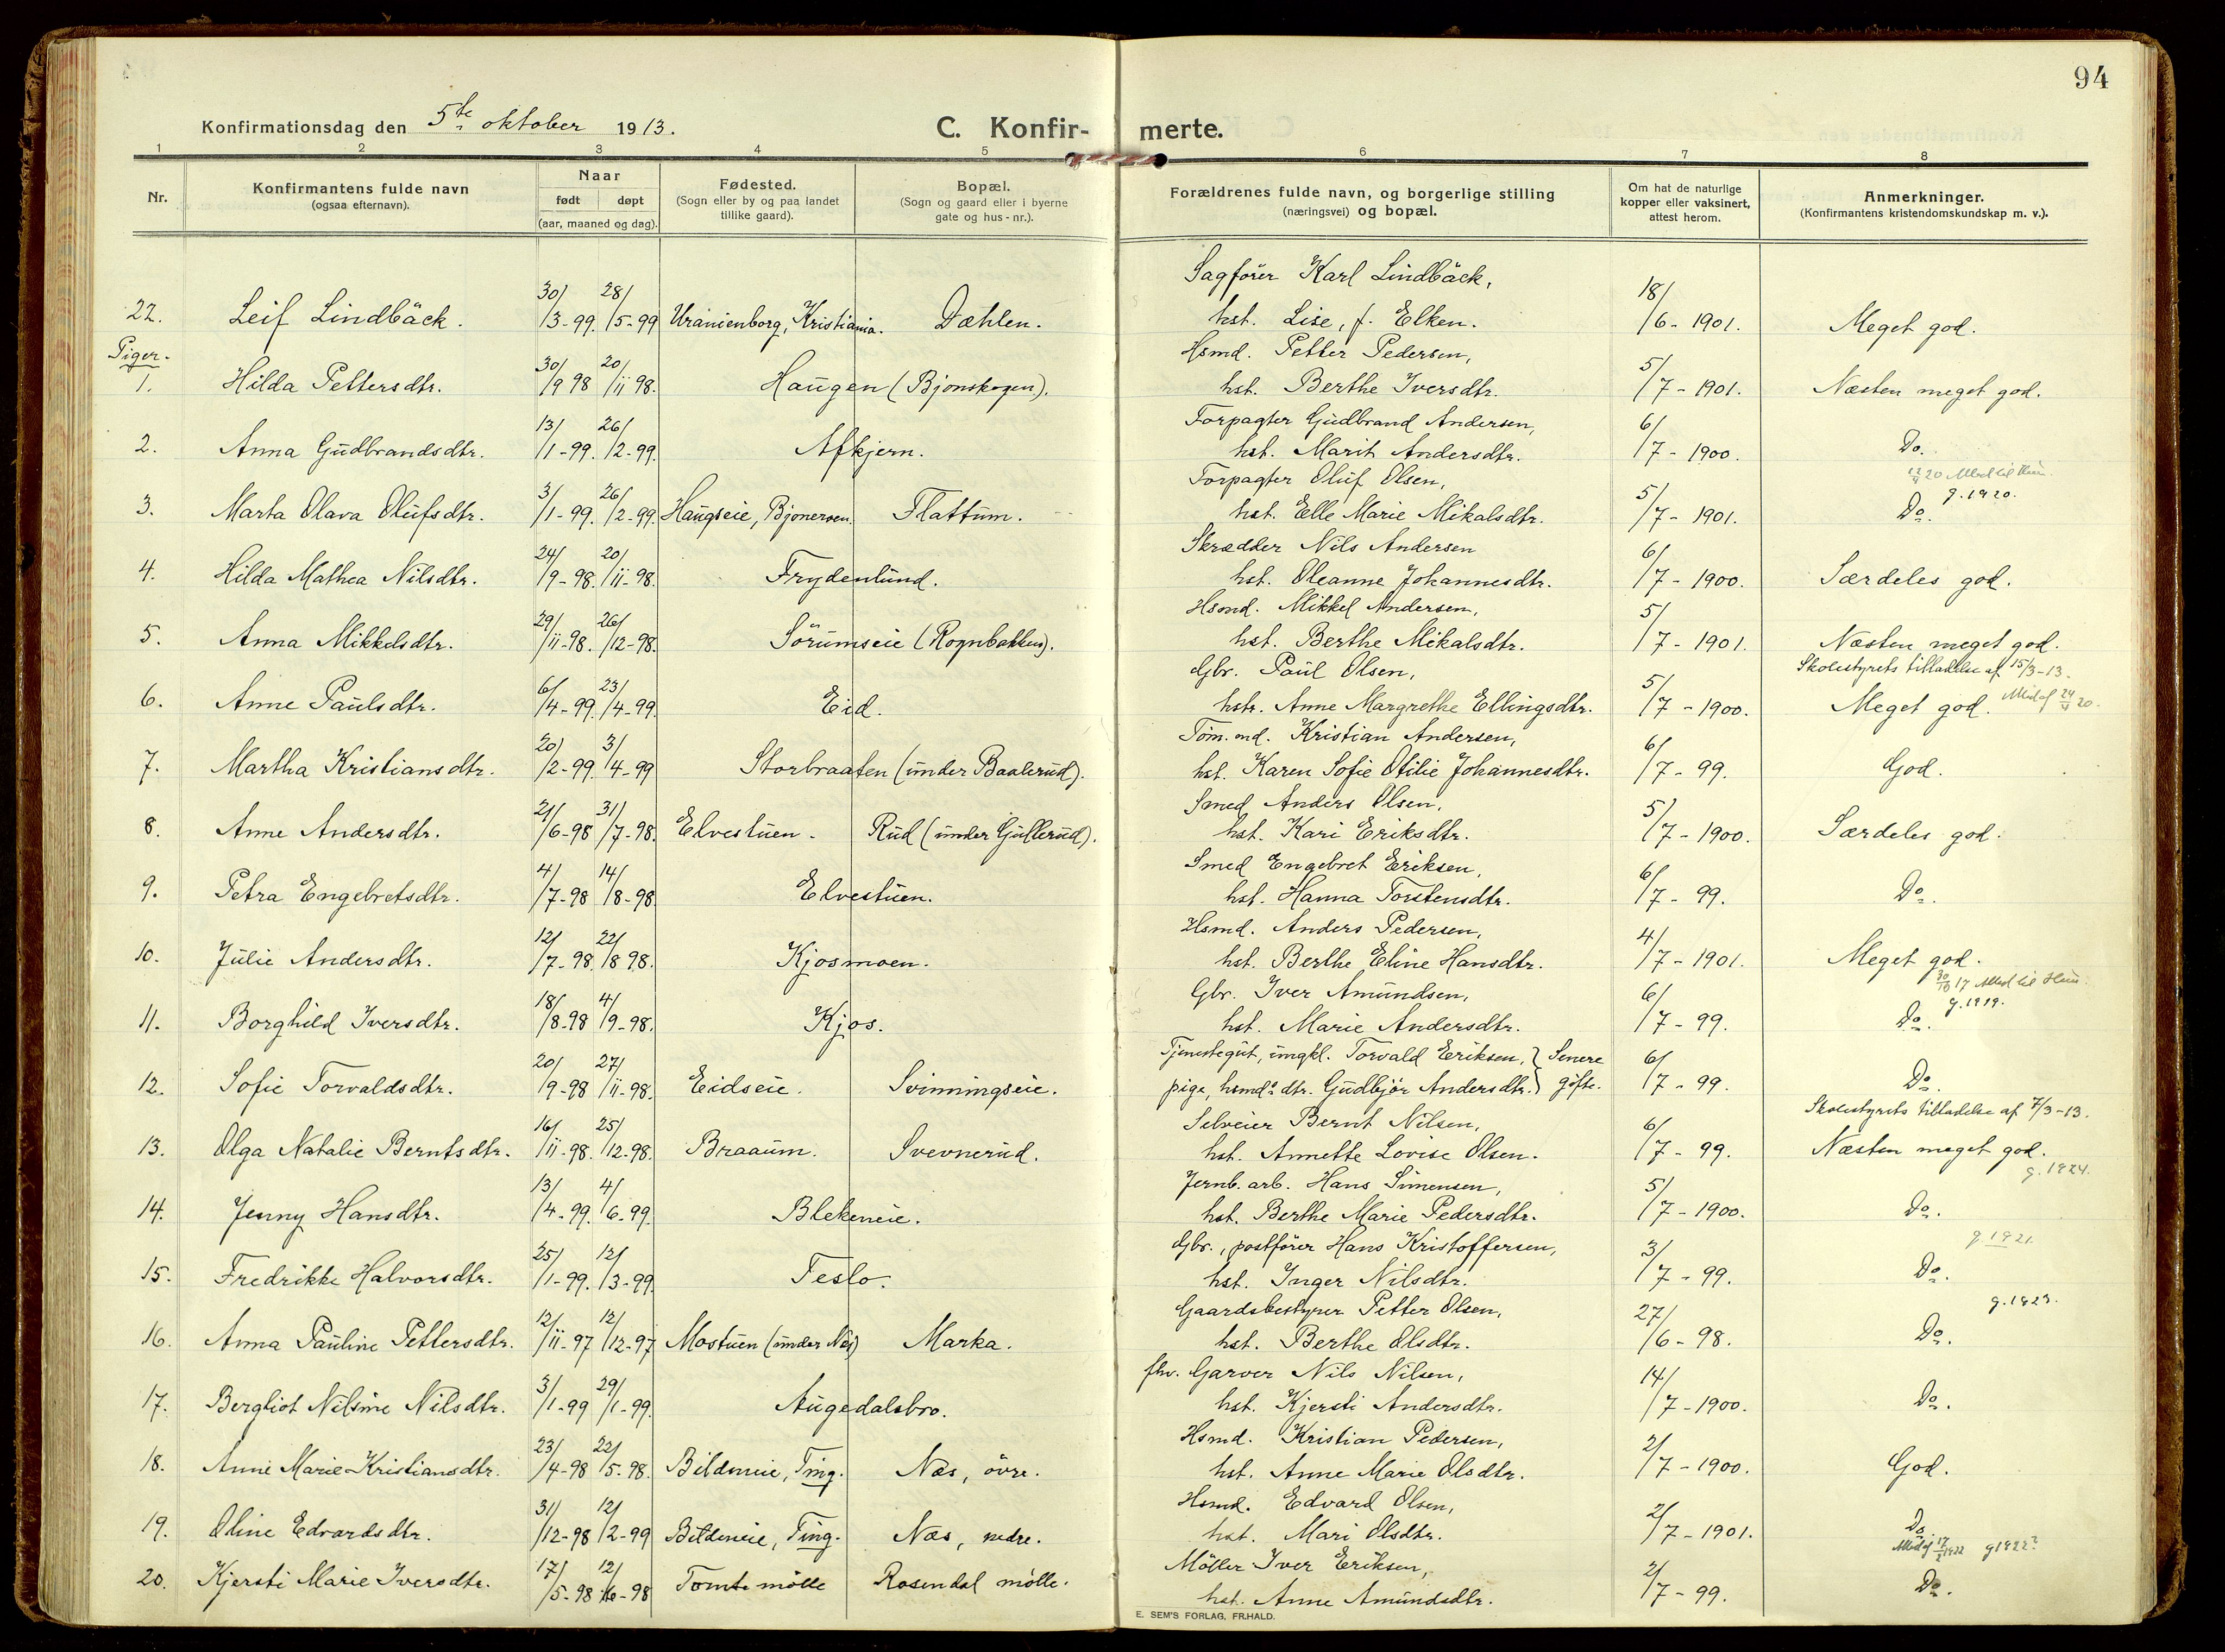 94
Konfirmationsdag den 5te oktober 1913.
C. Konfir- merte.
1 2 3 4 5 6 7 8
Nr.
Konfirmantens fulde navn
(ogsaa efternavn).
Naar
født døpt
(aar, maaned og dag).
Fødested.
(Sogn eller by og paa landet
tillike gaard).
Bopæl.
(Sogn og gaard eller i byerne
gate og hus-nr.).
Forældrenes fulde navn, og borgerlige stilling
(næringsvei) og bopæl.
Om hat de naturlige
kopper eller vaksinert,
attest herom.
Anmerkninger.
(Konfirmantens kristendomskundskap m. v.).
Sagfører Karl Lindbäck,
22. Leif Lindbäck. 30/3-99. 28/5-99 Uranienborg, Kristiania. Dæhlen. hst. Lise, f. Elken. 18/6-1901. Meget god.
Piger.
Hsmd. Petter Pedersen,
1. Hilda Pettersdtr. 30/9 98 20/11 98. Haugen (Bjonskogen). hst. Berthe Iversdtr. 5/7-1901. Næsten meget god.
Forpagter Gudbrand Andersen,
2. Anna Gudbrandsdtr. 13/1-99. 26/2-99. Afkjern. hst. Marit Andersdtr. 6/7-1900. Do.
Forpagter Oluf Olsen,
g. 1920.
3. Marta Olava Olufsdtr. 3/1-99. 26/2-99. Haugseie, Bjoneroen. Flattum. hst. Elle Marie Mikalsdtr. 5/7-1901. Do.
Skrædder Nils Andersen
4. Hilda Mathea Nilsdtr. 24/9-98. 20/11-98. Frydenlund. hst. Oleanne Johannesdtr. 6/7-1900. Særdeles god.
Hsmd. Mikkel Andersen,
5. Anna Mikkelsdtr. 29/11-98. 26/12-98. Sörumseie (Rognbakken). hst. Berthe Mikalsdtr. 5/7-1901. Næsten meget god.
Gbr. Paul Olsen,
Skolestyrets tilladelse af 15/3-13.
6. Anne Paulsdtr. 6/4-99. 23/4-99. Eid. hstr. Anne Margrethe Ellingsdtr. 5/7-1900. Meget god.
Töm.md. Kristian Andersen,
7. Martha Kristiansdtr. 20/2-99. 3/4-99 Storbraaten (under Baalerud). hst. Karen Sofie Otilie Johannesdtr. 6/7-99. God.
Smed Anders Olsen,
8. Anne Andersdtr. 21/6-98 31/7-98. Elvestuen. Rud (under Gullerud). hst. Kari Eriksdtr. 5/7-1900. Særdeles god.
Smed Engebret Eriksen,
9. Petra Engebretsdtr. 4/7-98 14/8-98. Elvestuen. hst. Hanna Torstensdtr. 6/7-99. Do.
Hsmd. Anders Pedersen,
10. Julie Andersdtr. 12/7-98. 22/8 98. Kjosmoen. hst. Berthe Eline Hansdtr. 4/7-1901. Meget god.
Gbr. Iver Amundsen,
g. 1919.
11. Borghild Iversdtr. 18/8-98 4/9-98. Kjos. hst. Marie Andersdtr. 6/7-99. Do.
Tjenestegut, ungkl. Torvald Eriksen, } Senere
12. Sofie Torvaldsdtr. 20/9-98 27/11-98. Eidseie. Svinningseie. pige, hsmds dtr. Gudbjör Andersdtr. } gifte. 6/7-99. Do.
Selveier Bernt Nilsen,
Skolestyrets tilladelse af 7/3-13.
13. Olga Natalie Berntsdtr. 16/11-98. 25/12-98. Braaum. Svevnerud. hst. Annette Lovise Olsen. 6/7-99. Næsten meget god.
Jernb.arb. Hans Simensen,
g. 1924.
14. Jenny Hansdtr. 13/4-99. 4/6-99. Blekeneie. hst. Berthe Marie Pedersdtr. 5/7-1900. Do.
Gbr., postförer Hans Kristoffersen,
g 1921
15. Fredrikke Halvorsdtr. 25/1-99. 12/3-99. Teslo. hst. Inger Nilsdtr. 3/7-99. Do.
Gaardsbestyrer Petter Olsen,
g. 1923.
16. Anna Pauline Pettersdtr. 12/11-97 12/12-97 Mostuen (under Næs) Marka. hst. Berthe Olsdtr. 27/6-98. Do.
fhv. Garver Nils Nilsen,
17. Bergliot Nilsine Nilsdtr. 3/1-99 29/1-99. Augedalsbro. hst. Kjersti Andersdtr. 14/7-1900. Do.
Hsmd. Kristian Pedersen,
18. Anne Marie Kristiansdtr. 23/4-98 22/5-98. Bildeneie, Ting. Næs, övre. hst. Anne Marie Olsdtr. 2/7-1900. God.
Hsmd. Edvard Olsen,
19. Oline Edvardsdtr. 31/12-98 12/2-99 Bildeneie, Ting. Næs, nedre. hst. Mari Olsdtr. 2/7-1901. Do.
Möller Iver Eriksen,
g 1922?
20. Kjersti Marie Iversdtr. 17/5-98 12/6-98 Tomte mölle Rosendal mölle. hst. Anne Amundsdtr. 2/7-99. Do.
E. SEM'S FORLAG, FR.HALD.